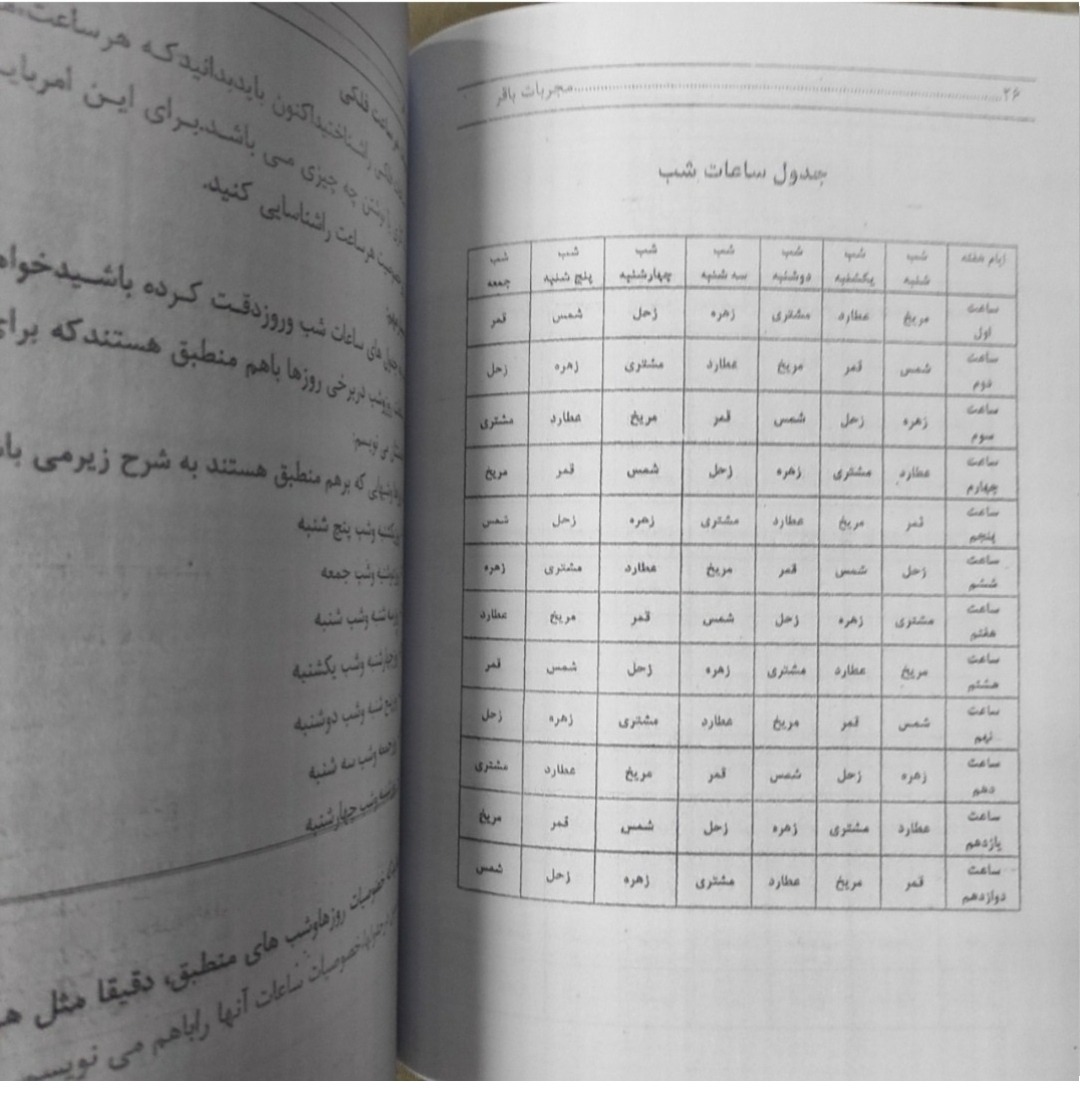 ۲۶ مجربات باقر
جدول ساعات شب
ایام هفته شب شب شب شب شب شب شب
شنبه یکشنبه دوشنبه سه شنبه چهارشنبه پنج شنبه جمعه
ساعت
اول مریخ عطارد مشتری زهره زحل شمس قمر
ساعت
دوم شمس قمر مریخ عطارد مشتری زهره زحل
ساعت
سوم زهره زحل شمس قمر مریخ عطارد مشتری
ساعت
چهارم عطارد مشتری زهره زحل شمس قمر مریخ
ساعت
پنجم قمر مریخ عطارد مشتری زهره زحل شمس
ساعت
ششم زحل شمس قمر مریخ عطارد مشتری زهره
ساعت
هفتم مشتری زهره زحل شمس قمر مریخ عطارد
ساعت
هشتم مریخ عطارد مشتری زهره زحل شمس قمر
ساعت
نهم شمس قمر مریخ عطارد مشتری زهره زحل
ساعت
دهم زهره زحل شمس قمر مریخ عطارد مشتری
ساعت
یازدهم عطارد مشتری زهره زحل شمس قمر مریخ
ساعت
دوازدهم قمر مریخ عطارد مشتری زهره زحل شمس
ساعت فلکی
راشناختیداکنون بایدبدانیدکه هرساعت
نوشتن چه چیزی می باشد.برای این امربای
هرساعت راشناسایی کنید.
جدول های ساعات شب وروزدقت کرده باشیدخواه
وشب دربرخی روزها باهم منطبق هستندکه برای
می نویسم:
که برهم منطبق هستند به شرح زیرمی با
یکشنبه وشب پنج شنبه
وشب جمعه
وشب شنبه
وشب یکشنبه
وشب دوشنبه
جمعه وشب سه شنبه
وشب چهارشنبه
خصوصیات روزهاوشب های منطبق، دقیقا مثل ه
خصوصیات ساعات آنها راباهم می نویسیم